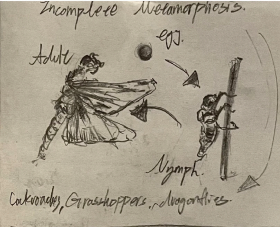 Incomplete Metamorphosis.
egg.
Adult
Nymph.
Cockroaches, Grasshoppers, dragonflies.